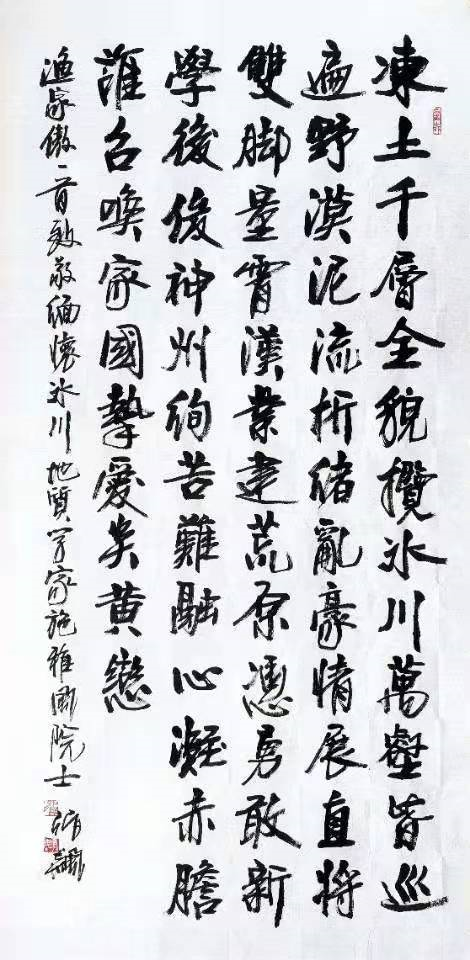 凍土千層全貌攬冰川萬壑皆巡
遍野漠泥流析储亂豪情展直將
雙脚量霄漢業建荒原憑勇敢新
學後俊神州絢苦難融心凝赤膽
誰召喚家國摯愛炎黄戀
漁家傲一首致敬緬懷冰川地質学家施雅風院士